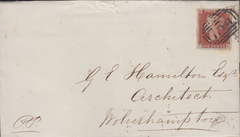 G E Hamilton Esqr
Architect
Wolverhampton